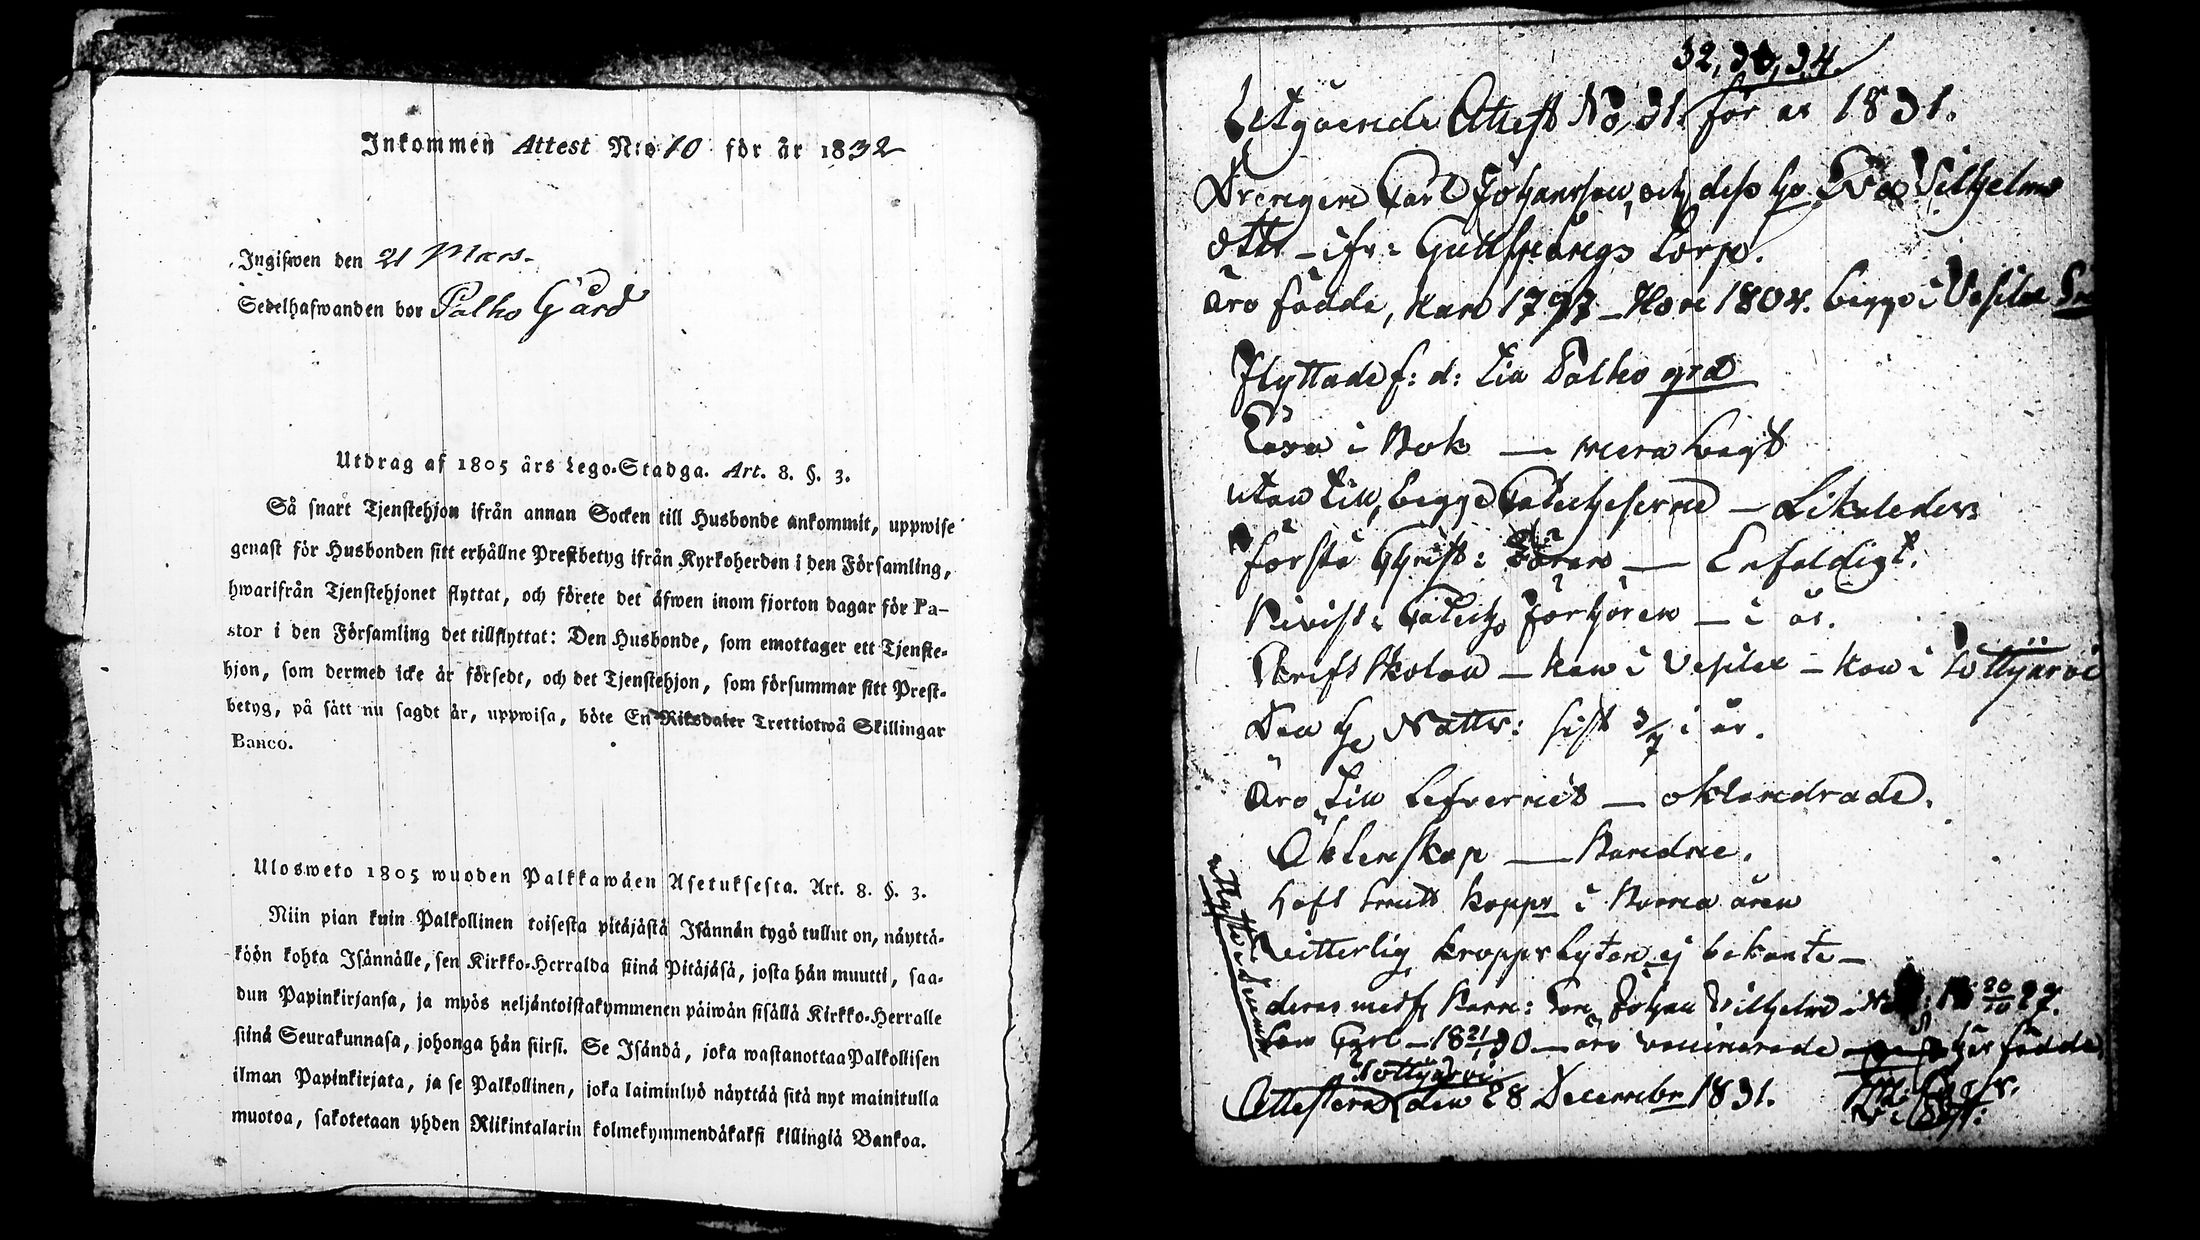 Inkommen Attest N:o 10 för år 1832
Ingifwen den 21 Mars.
Sedelhafwanden bor Palho Gård
Utdrag af 1805 års Lego-Stadga. Art. 8. §. 3.
Så snart Tjenstehjon ifrån annan Socken till Husbonde ankommit, uppwise
genast för Husbonden sitt erhållne Prestbetyg ifrån Kyrkoherden i den Församling,
hwarifrån Tjenstehjonet flyttat, och förete det äfwen inom fjorton dagar för Pa-
stor i den Församling det tillflyttat: Den Husbonde, som emottager ett Tjenste-
hjon, som dermed icke är försedt, och det Tjenstehjon, som försummar sitt Prest-
betyg, på sätt nu sagdt är, uppwisa, böte En Riksdaler Trettiotwå Skillingar
Banco.
Ulosweto 1805 wuoden Palkkawäen Asetuksesta. Art. 8. §. 3.
Niin pian kuin Palkollinen toisesta pitäjästä Isännän tygö tullut on, näyttä-
köön kohta Isännälle, sen Kirkko-Herralda siinä Pitäjäsä, josta hän muutti, saa-
dun Papinkirjansa, ja myös neljäntoistakymmenen päiwän sisällä Kirkko-Herralle
siinä Seurakunnasa, johonga hän siirsi. Se Isändä, joka wastanottaa Palkollisen
ilman Papinkirjata, ja se Palkollinen, joka laiminlyö näyttää sitä nyt mainitulla
muotoa, sakotetaan yhden Riikintalarin kolmekymmendäkaksi killingiä Bankoa.
32, 33, 34
Utgående Attest No, 31. för år 1831.
Drengen Carl Johansson, och dess hu Eva Vilhelms
dttr - ifr: Gullsprångs torp.
äro födde, Han 1797 - Hon 1804. begge i Vesilax
Flyttade f: d: til Palho grd
Läsa i Bok — mera begt
utan till, begge Catecheserne — Likaledes
förstå Christ: Läran — Enfaldigt.
Bivist: Catech: Förhören — i år.
Skriftskolan — han i Vesilax — hon i Lottijärvi
Den hge Nattv: sist 3/7 i år.
Äro till lefvernet — oklandrade.
Äktenskap — Bundne.
haft Smitt koppr i Barna åren
Vitterlig kroppslyten ej bekante —
deras medf: Barn: Son Johan Vilhelm 20/10 27.
Son Carl — 18 21/1 30 — äro vaccinerade här födde
Hottijärvi
Attesterar den 28 December 1831.